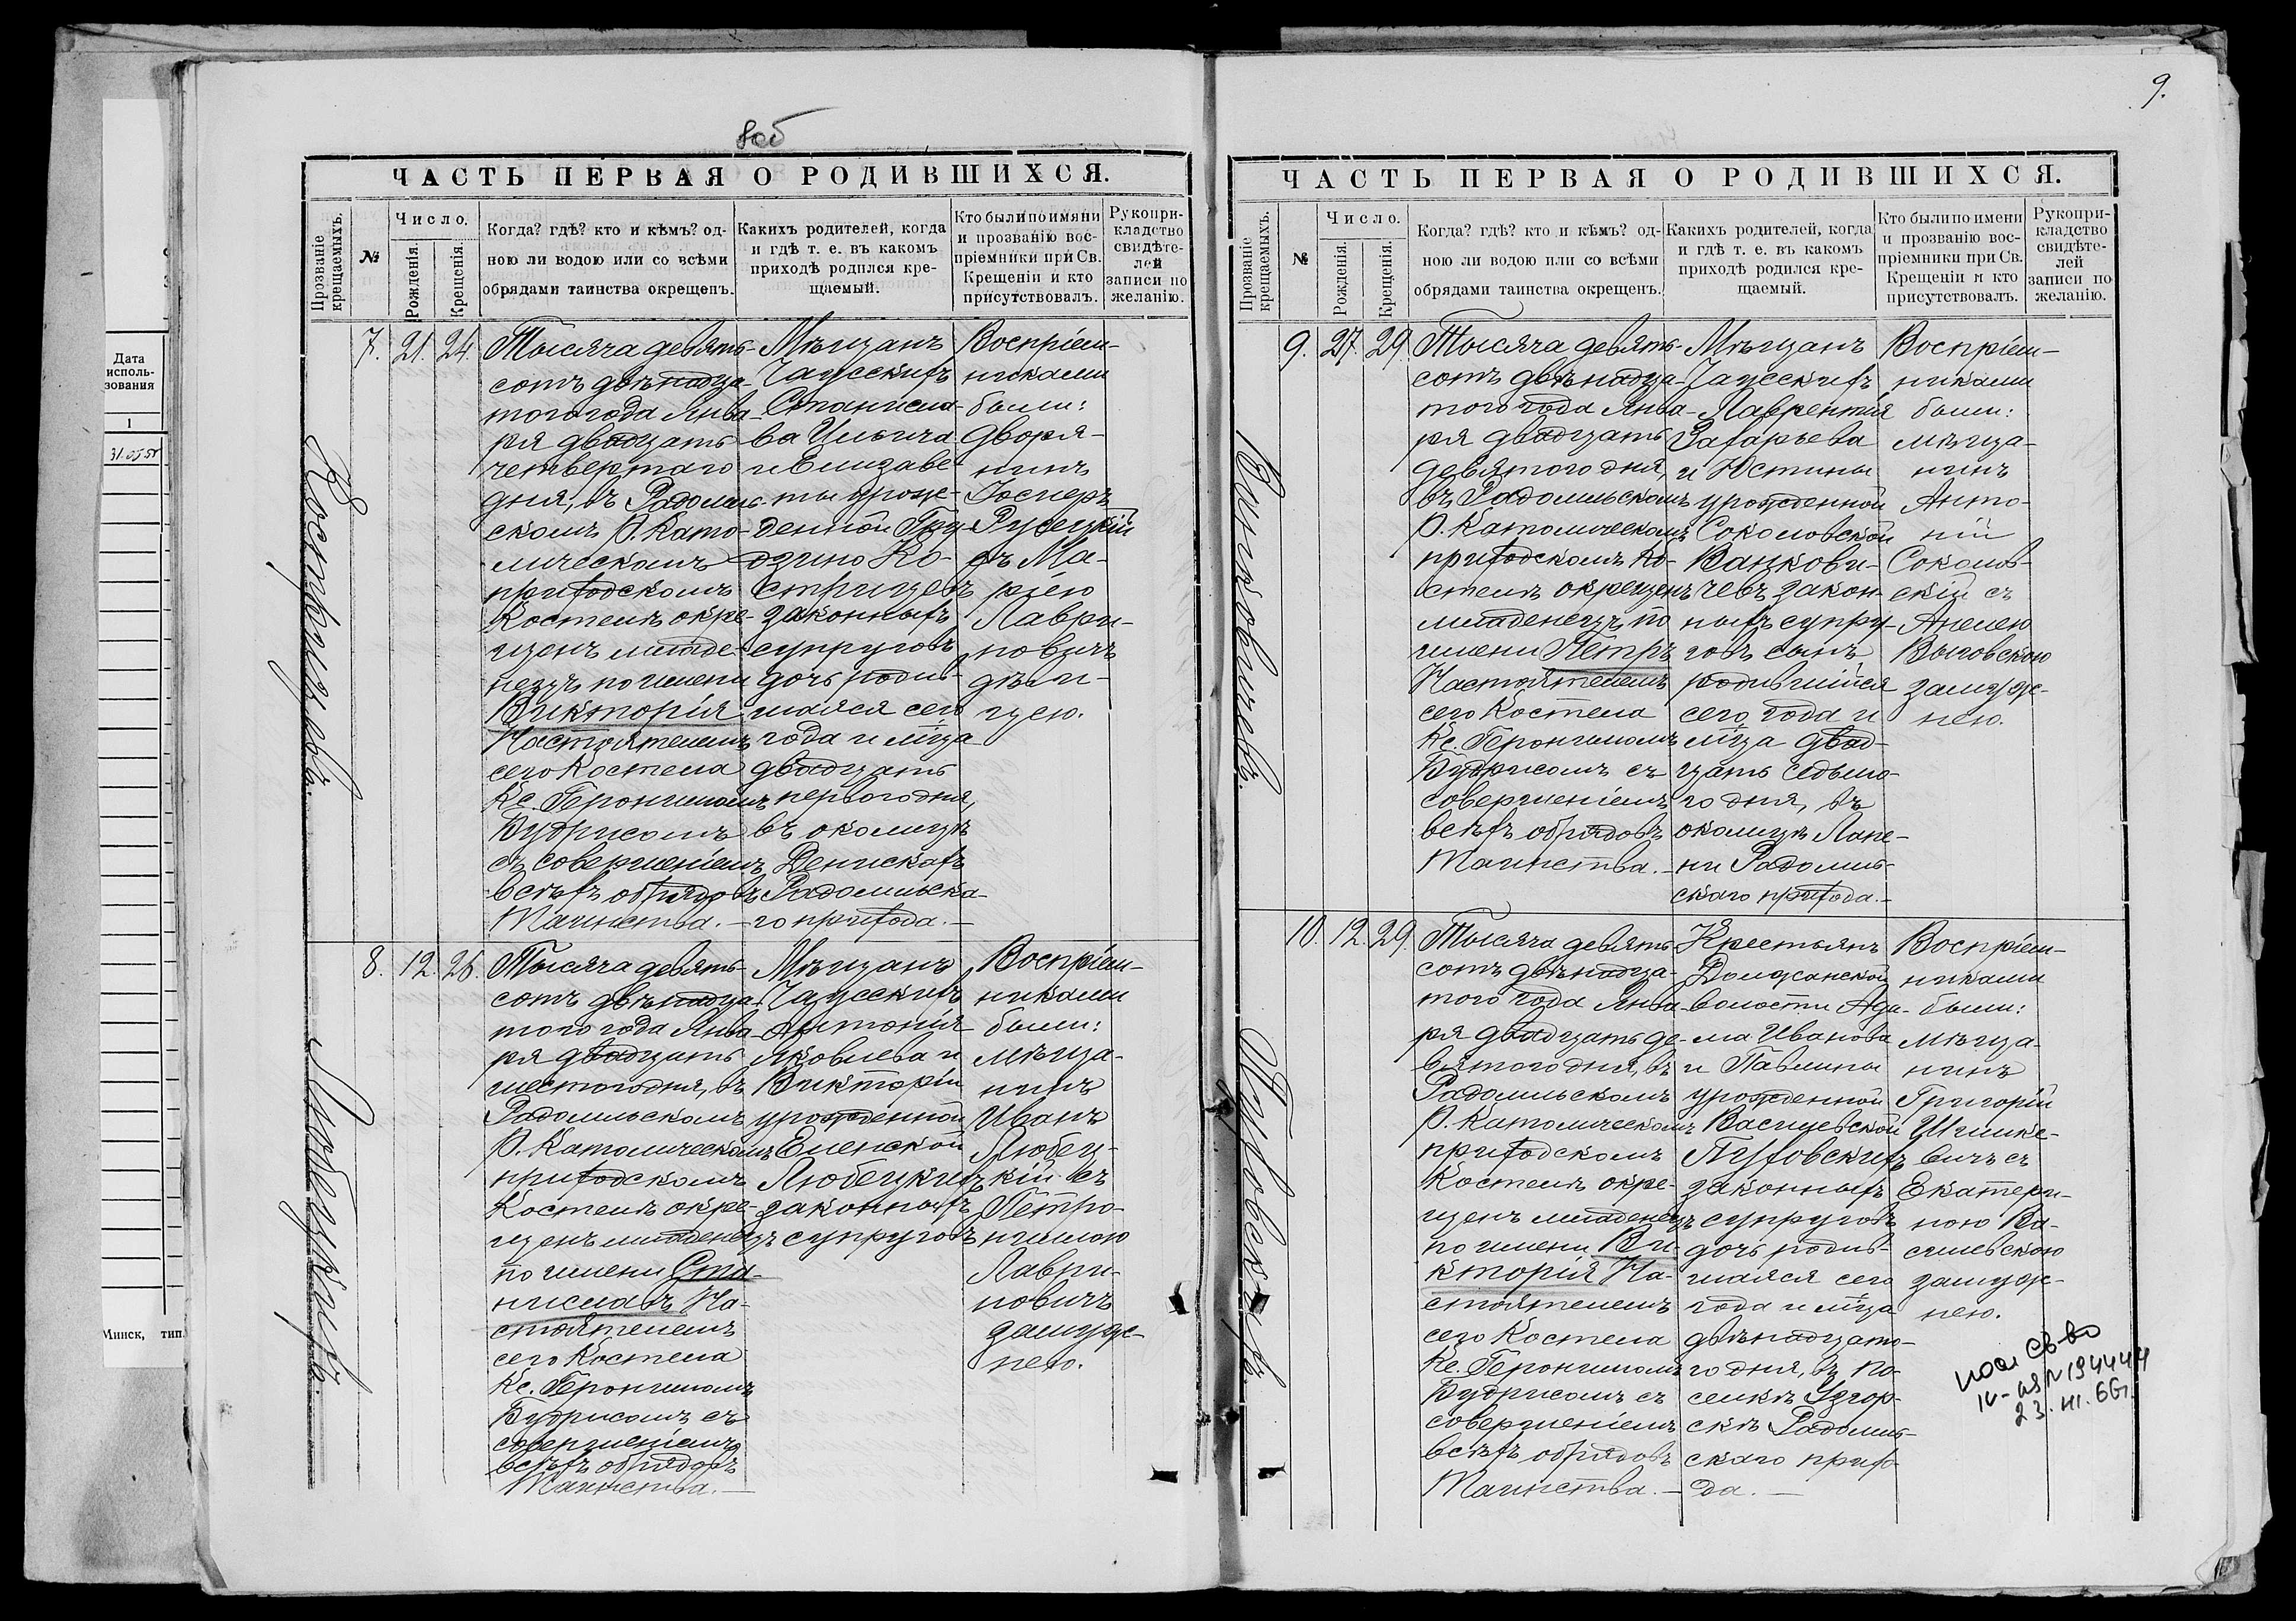 Дата
исполь-
зования
1
31.05.55
Минск, тип.
8об
ЧАСТЬ ПЕРВАЯ О РОДИВШИХСЯ.
Прозваніе крещаемыхъ.
№
Число.
Рожденія.
Крещенія.
Когда? гдѣ? кто и кѣмъ? од-
ною ли водою или со всѣми
обрядами таинства окрещенъ.
Какихъ родителей, когда
и гдѣ т. е. въ какомъ
приходѣ родился кре-
щаемый.
Кто были по имяни
и прозванію вос-
пріемники при Св.
Крещеніи и кто
присутствовалъ.
Рукопри-
кладство
свидѣте-
лей
записи по
желанію.
7. 21. 24.
Тысяча девять-
сотъ двѣнадца-
того года Янва-
ря двадцать
четвертаго
дня, въ Радомль-
скомъ Р. Като-
лическомъ
приходскомъ
Костелѣ окре-
щенъ младе-
нецъ по имени
Викторія
Настоятелемъ
сего Костела
Кс. Геронимомъ
Будрисомъ
съ совершеніемъ
всѣхъ обрядовъ
Таинства. —
Мѣщанъ
Чаусскихъ
Станисла-
ва Ильича
и Елизаве-
ты урож-
денной Гру-
дзино Ко-
стрицевъ
законныхъ
супруговъ
дочь родив-
шаяся сего
года и мца
двадцать
перваго дня,
въ околицѣ
Денискахъ
Радомльска-
го прихода. —
Воспріем-
никами
были:
дворя-
нинъ
Госперъ
Русецкій
съ Ма-
ріею
Лаври-
новичъ
дѣви-
цею.
Кострицевъ.
8. 12. 26.
Тысяча девять-
сотъ двѣнадца-
того года Янва-
ря двадцать
шестого дня, въ
Радомльскомъ
Р. Католическомъ
приходскомъ
Костелѣ окре-
щенъ младенецъ
по имени Ста-
ниславъ На-
стоятелемъ
сего Костела
Кс. Геронимомъ
Будрисомъ съ
совершеніемъ
всѣхъ обрядовъ
Таинства. —
Мѣщанъ
Чаусскихъ
Антонія
Яковлева и
Викторіи
урожденной
Еленской
Любецкихъ
законныхъ
супруговъ
Воспріем-
никами
были:
мѣща-
нинъ
Иванъ
Любец-
кій съ
Петро-
нилою
Лаври-
новичъ
замуж-
нею.
Любецкихъ.
9.
ЧАСТЬ ПЕРВАЯ О РОДИВШИХСЯ.
Прозваніе крещаемыхъ.
№
Число.
Рожденія.
Крещенія.
Когда? гдѣ? кто и кѣмъ? од-
ною ли водою или со всѣми
обрядами таинства окрещенъ.
Какихъ родителей, когда
и гдѣ т. е. въ какомъ
приходѣ родился кре-
щаемый.
Кто были по имени
и прозванію вос-
пріемники при Св.
Крещеніи и кто
присутствовалъ.
Рукопри-
кладство
свидѣте-
лей
записи по
желанію.
9. 27. 29.
Тысяча девять-
сотъ двѣнадца-
того года Янва-
ря двадцать
девятого дня,
въ Радомльскомъ
Р. Католическомъ
приходскомъ Ко-
стелѣ окрещенъ
младенецъ по
имени Петръ
Настоятелемъ
сего Костела
Кс. Геронимомъ
Будрисомъ съ
совершеніемъ
всѣхъ обрядовъ
Таинства. —
Мѣщанъ
Чаусскихъ
Лаврентія
Захарьева
и Юстины
урожденной
Соколовской
Ванкови-
чевъ закон-
ныхъ супру-
говъ сынъ
родившійся
сего года и
мца двад-
цать седьмо-
го дня, въ
околицѣ Лапе-
ни Радомль-
скаго прихода. —
Воспріем-
никами
были:
мѣща-
нинъ
Анто-
ній
Соколов-
скій съ
Анелею
Выковскою
замуж-
нею.
Ванковичевъ.
10. 12. 29.
Тысяча девять-
сотъ двѣнадца-
того года Янва-
ря двадцать де-
вятого дня, въ
Радомльскомъ
Р. Католическомъ
приходскомъ
Костелѣ окре-
щенъ младенецъ
по имени Ви-
кторія На-
стоятелемъ
сего Костела
Кс. Геронимомъ
Будрисомъ съ
совершеніемъ
всѣхъ обрядовъ
Таинства. —
Крестьянъ
Должанской
волости Ада-
ма Иванова
и Павлины
урожденной
Василевской
Пуховскихъ
законныхъ
супруговъ
дочь родив-
шаяся сего
года и мца
двѣнадцато-
го дня, въ по-
селкѣ Узгор-
скѣ Радомль-
скаго прихо-
да. —
Воспріем-
никами
были:
мѣща-
нинъ
Григорій
Ишике-
вичъ съ
Екатери-
ною Ва-
силевскою
замуж-
нею.
Пуховскихъ.
св-во
№ 194444
23. III. 66г.